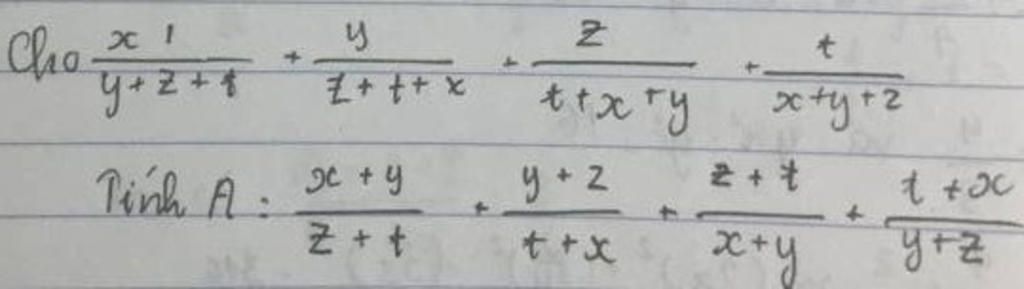 Cho x/(y+z+t) + y/(z+t+x) + z/(t+x+y) + t/(x+y+z)
Tính A: (x+y)/(z+t) + (y+z)/(t+x) + (z+t)/(x+y) + (t+x)/(y+z)